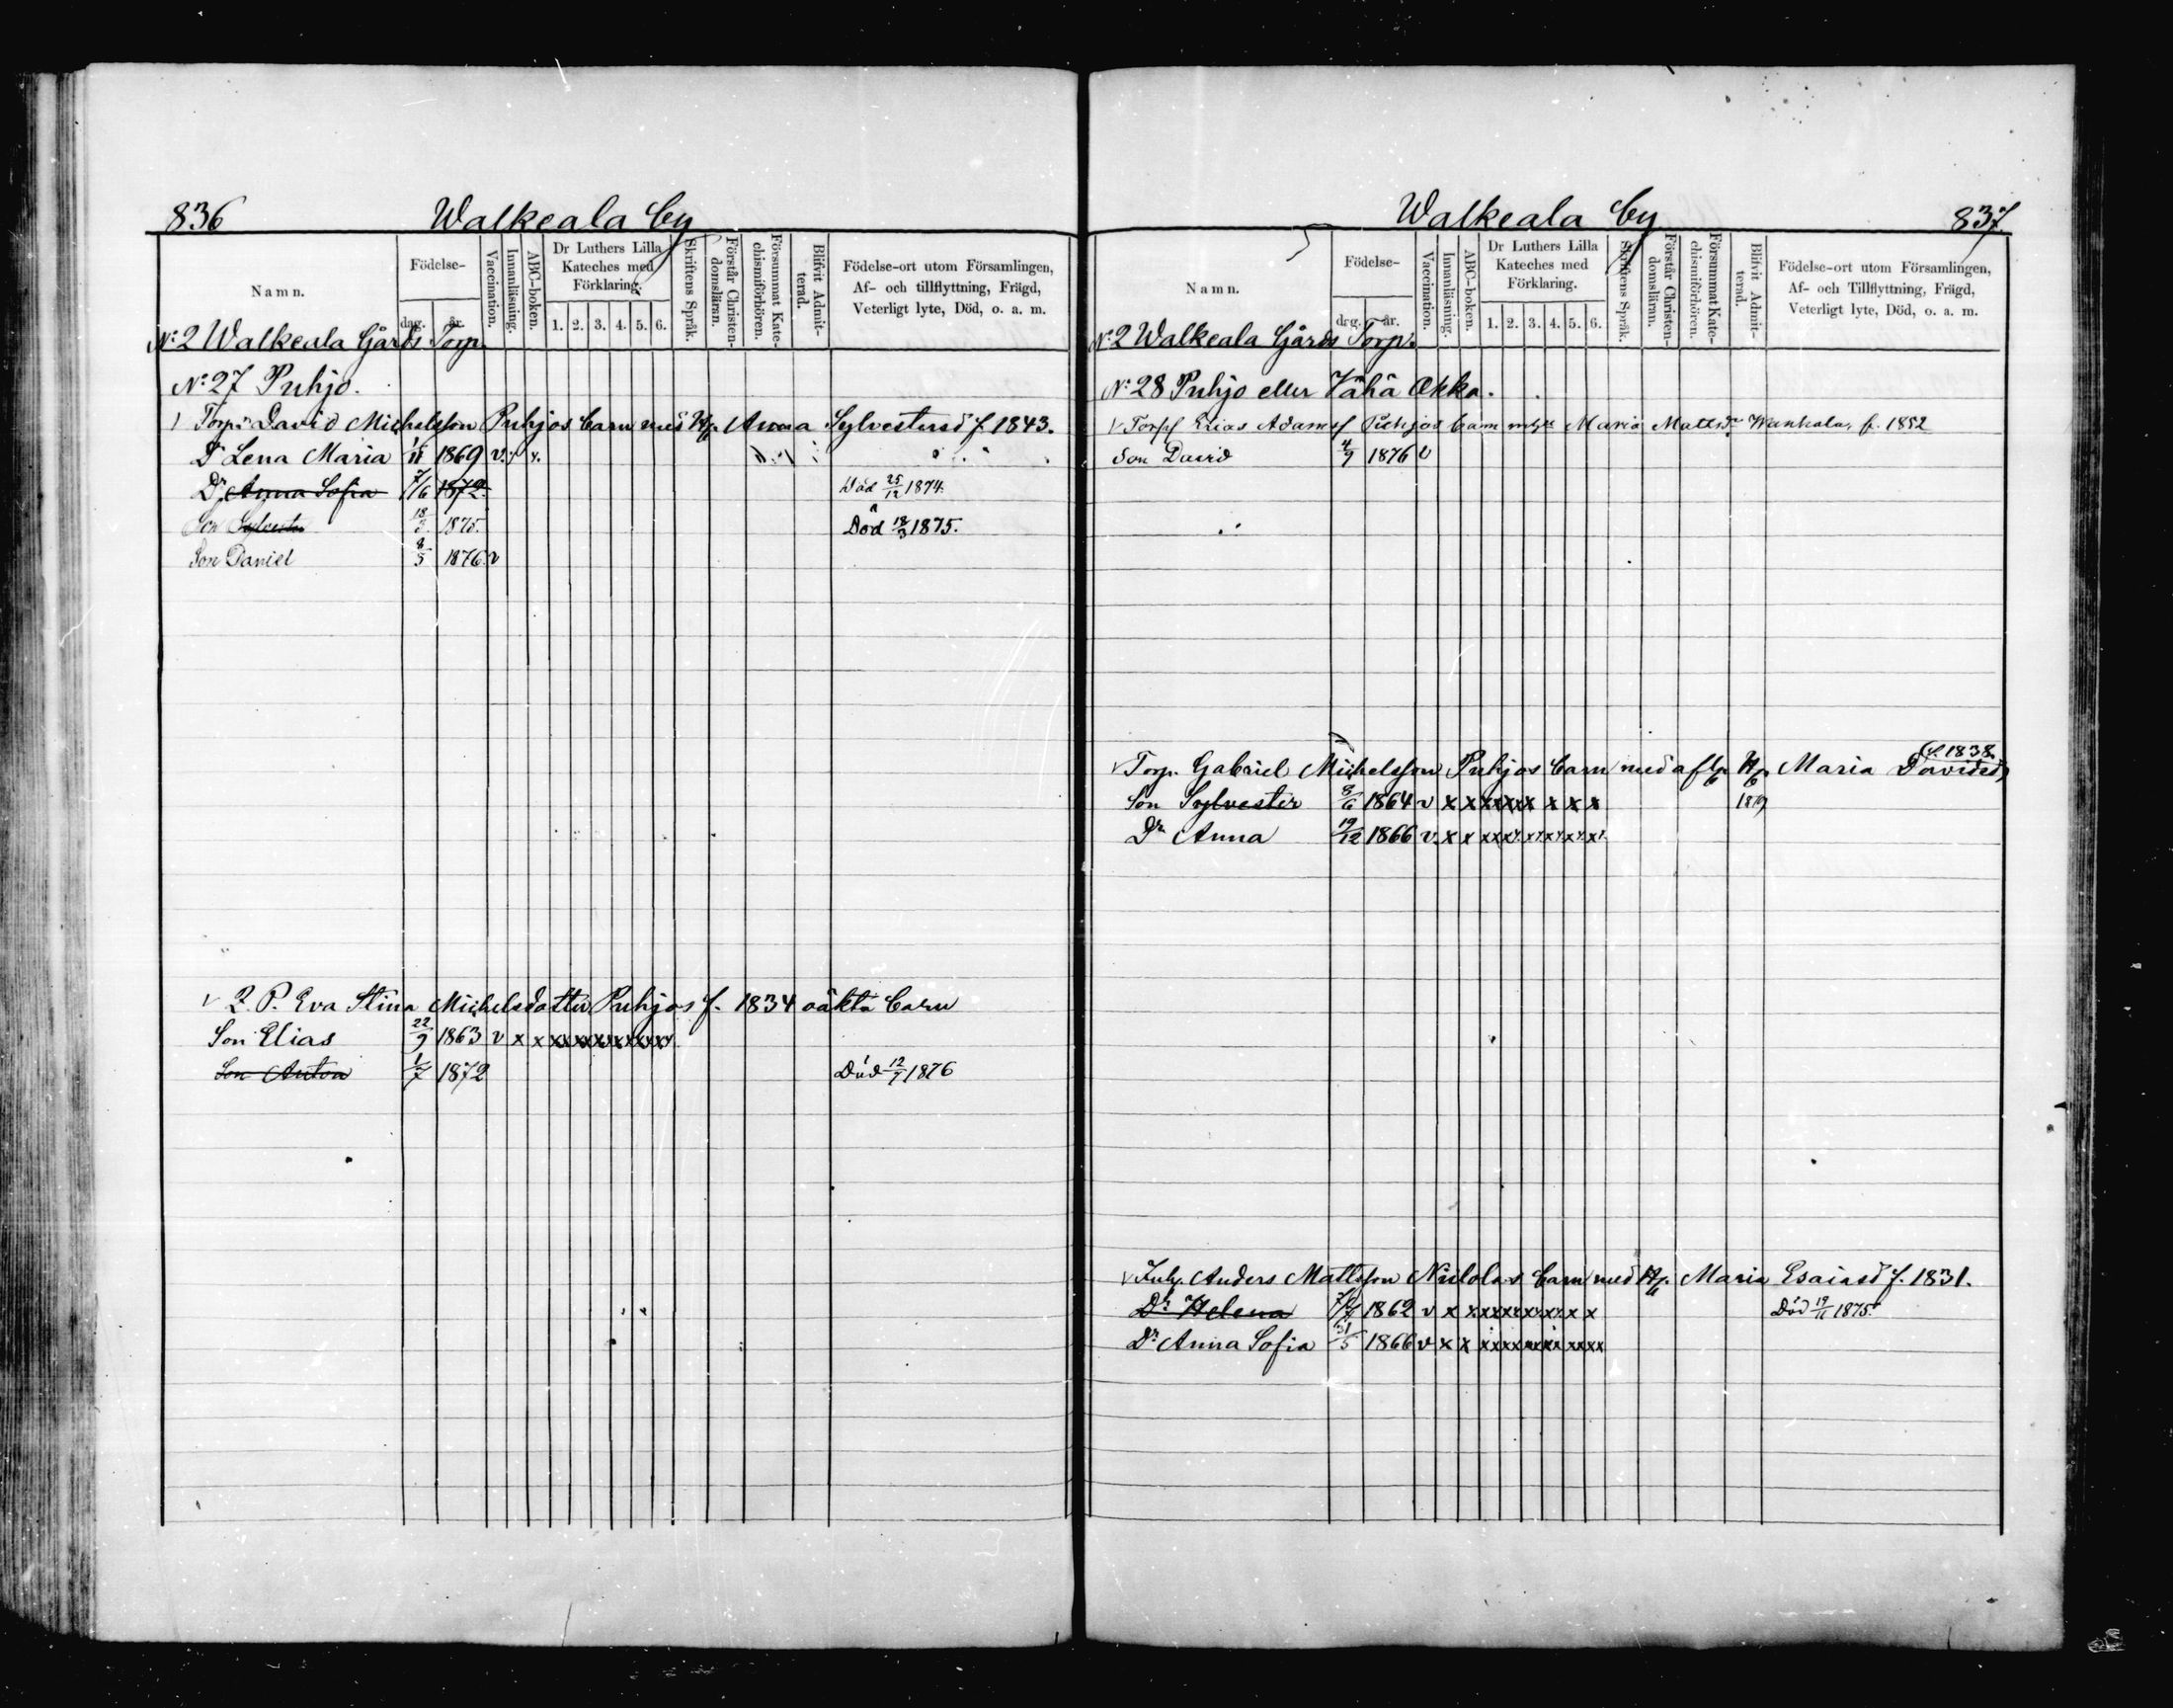 836 Walkeala by
Namn. Födelse- dag. år. Vaccination. Innanläsning. ABC-boken. Dr Luthers Lilla Kateches med Förklaring. 1. 2. 3. 4. 5. 6. Skriftens Språk. Förstår Christendomsläran. Försummat Katechismiförhören. Blifvit Admitterad. Födelse-ort utom Församlingen, Af- och tillflyttning, Frägd, Veterligt lyte, Död, o. a. m.
No 2 Walkeala Gårds Torp.
No 27 Puhjo.
Torp. David Michelsson Puhjos barn med H. Anna Sylvestersd f. 1843.
Dr Lena Maria 1869 v. x.
Dr Anna Sofia 7/6 1872. Död 25/12 1874.
Son Sylvester 18/3 1875. Död 18/3 1875.
Son Daniel 8/5 1876 v
v Q. P. Eva Stina Michelsdotter Puhjos f. 1834 oäkta barn
Son Elias 22/9 1863 v x x xxxxxxxxxxx
Son Anton 1/7 1872 Död 12/7 1876
Walkeala by 837
Namn. Födelse- dag. år. Vaccination. Innanläsning. ABC-boken. Dr Luthers Lilla Kateches med Förklaring. 1. 2. 3. 4. 5. 6. Skriftens Språk. Förstår Christendomsläran. Försummat Katechismiförhören. Blifvit Admitterad. Födelse-ort utom Församlingen, Af- och Tillflyttning, Frägd, Veterligt lyte, Död, o. a. m.
No 2 Walkeala Gårds Torp.
No 28 Puhjo eller Vähä Okka.
v Torp Elias Adamsf Puhjos barn m Maria Mattsdr f. 1852
Son David 4/7 1876 v
(f. 1838
v Torp. Gabriel Michelsson Puhjos barn med afl. H. Maria Davidsd)
Son Sylvester 8/6 1864 v x x xxxxx x x x 1879
Dr Anna 19/12 1866 v. x x xxxxxxxxx
v Inh. Anders Mattsson barn med H. Maria Esaiasd f. 1831.
Dr Helena 1862 v x xxxxxxxxx x x Död 19/11 1875.
Dr Anna Sofia 31/5 1866 v x x xxxxxxxx xxxx